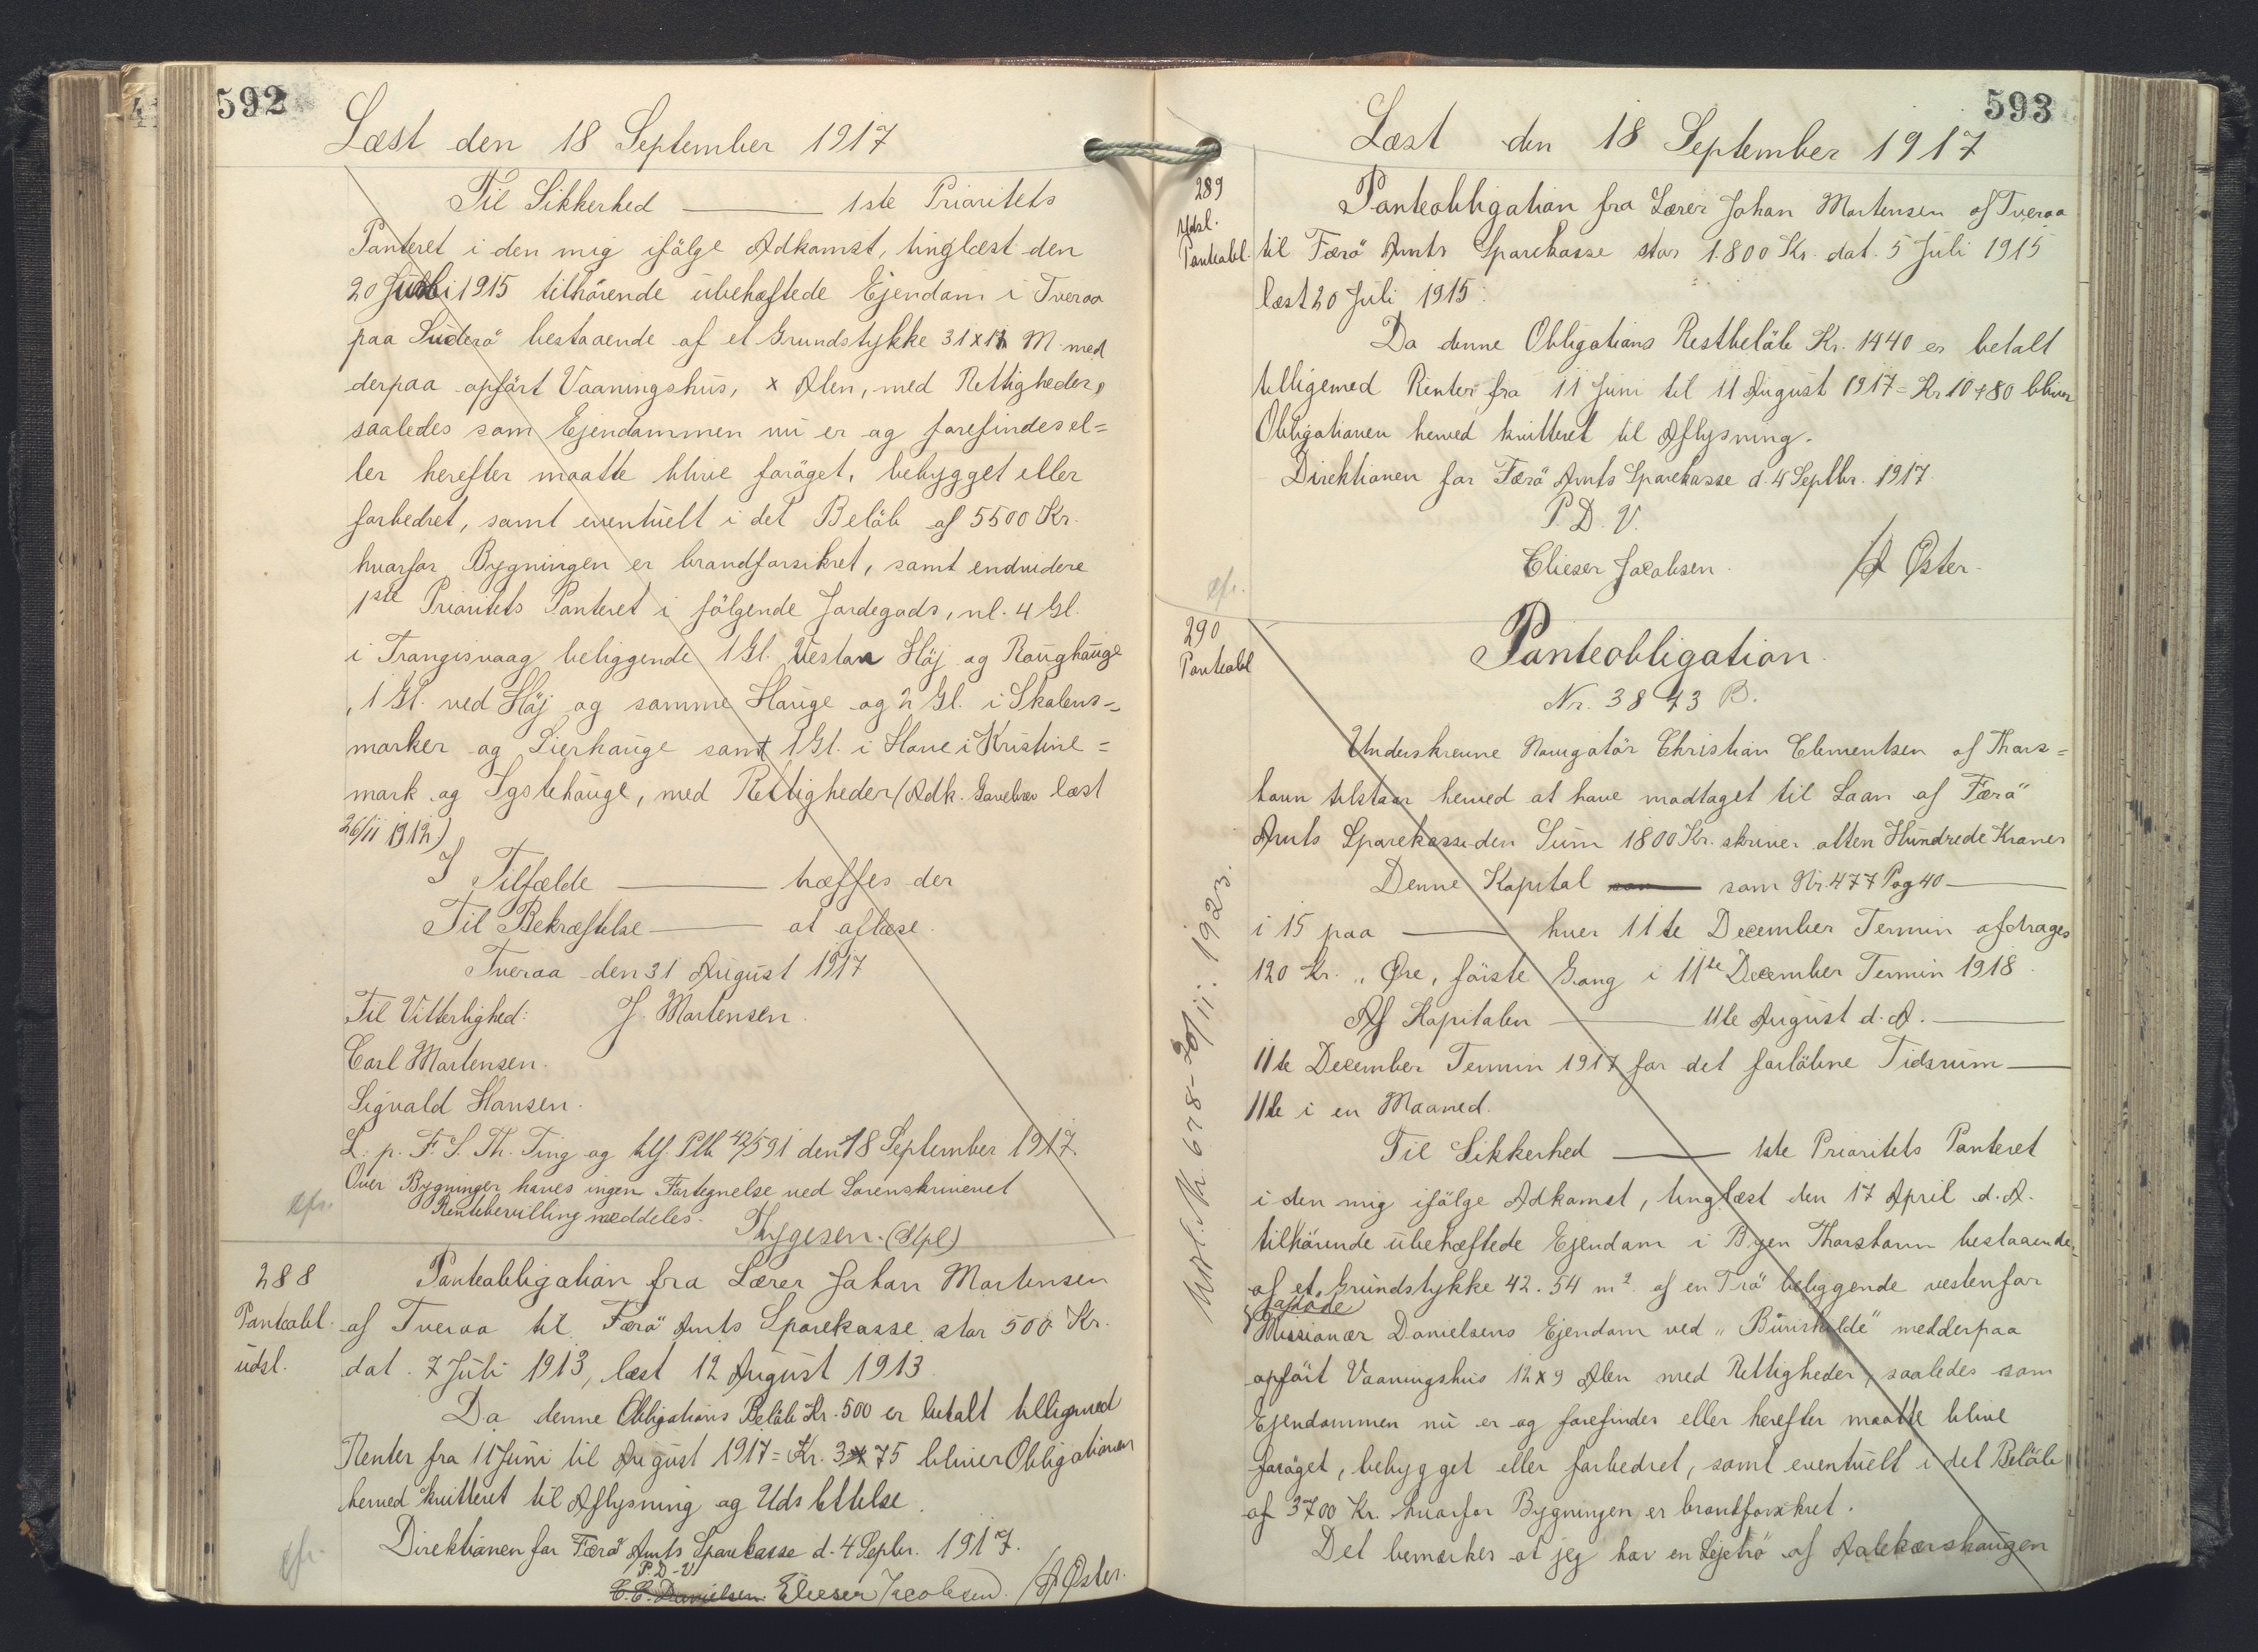 592
Læst den 18 September 1917
Til Sikkerhed ——— 1ste Prioritets
Panteret i den mig ifölge Adkomst, tinglæst den
20 Juli 1915 tilhörende ubehæftede Ejendom i Tveraa
paa Suderö bestaaende af et Grundstykke 31 x 17 M. med
derpaa opfört Vaaningshus, x Alen, med Rettigheder,
saaledes som Ejendommen nu er og forefindes el=
ler herefter maatte blive foröget, bebygget eller
forbedret, samt eventuelt i det Belöb af 5500 Kr.
hvorfor Bygningen er brandforsikret, samt endvidere
1ste Prioritets Panteret i fölgende Jordegods, nl. 4 Gl.
i Trangisvaag beliggende 1 Gl. Vestan Höj og Roughauge
, 1 Gl. ved Höj og samme Hauge og 2 Gl. i Skalens=
marker og Lierhauge samt 1 Gl. i Hove i Kristine=
mark og Ygstehauge, med Rettigheder (Adk. Gavebrev læst
26/11 1912.)
I Tilfælde ——— træffes der
Til Bekræftelse ——— at aflæse.
Tveraa den 31 August 1917
Til Vitterlighed: J. Mortensen.
Carl Mortensen.
Sigvald Hansen.
L. p. F. S. Th. Ting og tlf. Ptb 42/591 den 18 September 1917.
Over Bygninger haves ingen Fortegnelse ved Sorenskriveriet
Rentebevilling meddeles.
Thygesen. (Stpl)
cfr.
288
Panteobl.
udsl.
Panteobligation fra Lærer Johan Mortensen
af Tveraa til Færö Amts Sparekasse stor 500 Kr.
dat. 7 Juli 1913, læst 12 August 1913.
Da denne Obligations Belöb Kr. 500 er betalt tilligemed
Renter fra 11 Juni til August 1917 = Kr. 3 75 bliver Obligationen
herved kvitteret til Aflysning og Udslettelse.
Direktionen for Færö Amts Sparekasse d. 4 Septbr. 1917.
P. D. V
C. C. Danielsen. Elieser Jacobsen. / A Øster.
cfr.
593
Læst den 18 September 1917
289
Udsl.
Panteobl.
Panteobligation fra Lærer Johan Mortensen af Tveraa
til Færö Amts Sparekasse stor 1.800 Kr. dat. 5 Juli 1915
læst 20 Juli 1915.
Da denne Obligations Restbelöb Kr. 1440 er betalt
tilligemed Renter fra 11 Juni til 11 August 1917 = Kr 10+80 bliver
Obligationen herved kvitteret til Aflysning.
Direktionen for Færö Amts Sparekasse d. 4 Septbr. 1917.
P. D. V.
Elieser Jacobsen. / A Øster.
cfr.
290
Panteobl
Panteobligation.
Nr. 3843 B.
Underskrevne Navigatör Christian Clementsen af Thors=
havn tilstaar herved at have modtaget til Laan af Færö
Amts Sparekasse den Sum 1800 Kr. skriver atten Hundrede Kroner
Denne Kapital ——— som Nr. 477 Pag 40 ———
i 15 paa ——— hver 11te December Termin afdrages
120 Kr. " Øre, förste Gang i 11te December Termin 1918.
Af Kapitalen ——— 11te August d. A. ———
11te December Termin 1917 for det forlöbne Tidsrum ———
11te i en Maaned.
Til Sikkerhed ——— 1ste Prioritets Panteret
i den mig ifölge Adkomst, tinglæst den 17 April d. A.
tilhörende ubehæftede Ejendom i Byen Thorshavn bestaaende
af et Grundstykke 42.54 m² af en Trö beliggende vestenfor
Missionær Danielsens Ejendom ved "Buriskilde" med derpaa
opfört Vaaningshus 12 x 9 Alen med Rettigheder, saaledes som
Ejendommen nu er og forefindes eller herefter maatte blive
foröget, bebygget eller forbedret, samt eventuelt i det Belöb
af 3700 Kr. hvorfor Bygningen er brandforsikret.
Det bemærkes at jeg har en Lejetrö af Aalekærshaugen
Udsl. Nr. 678 - 20/11: 1923.